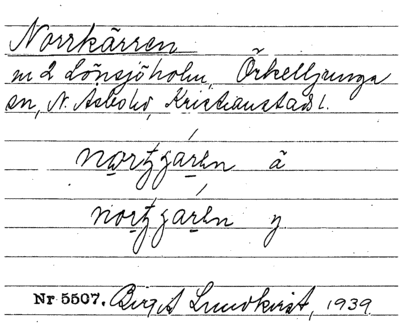 Norrkärren
m 2 Lönsjöholm, Örkelljunga
sn, N. Åsbo hd, Kristianstads l.
ä
y
Nr 5507. Birgit Lundkvist, 1939